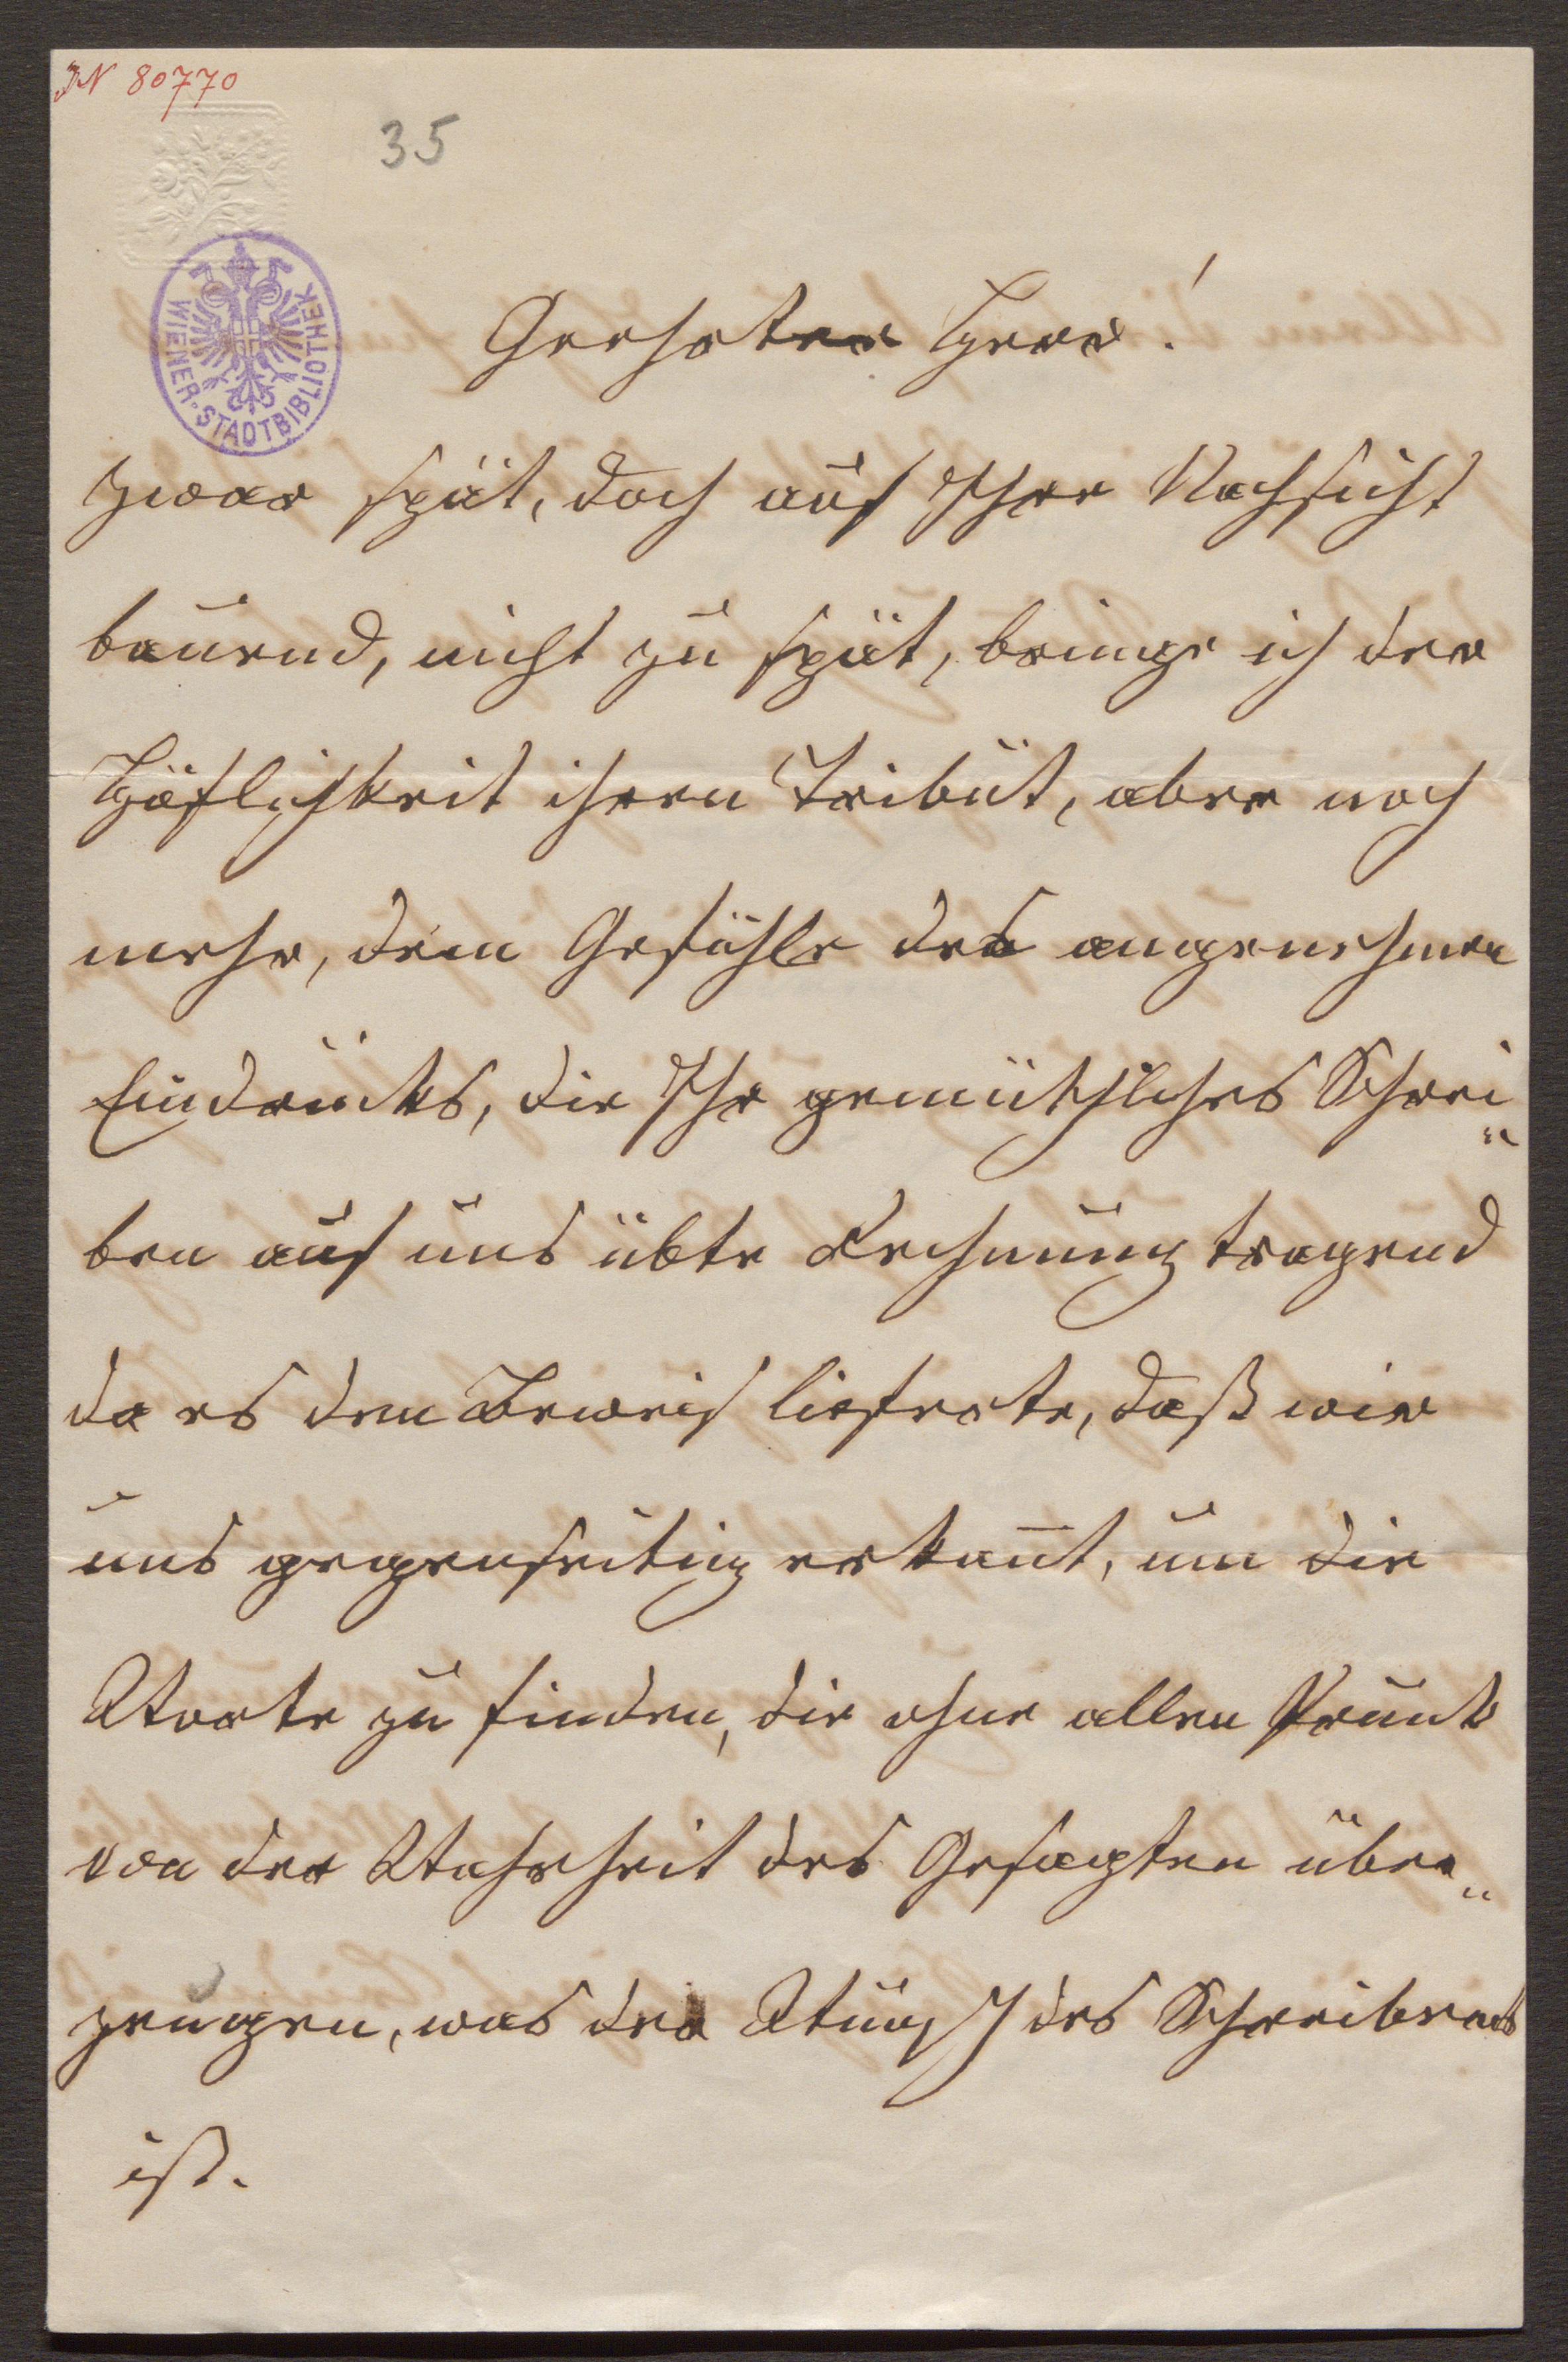 IN 80770
35
WIENER·STADTBIBLIOTHEK
Geehrter Herr!
Zwar spät, doch auf Ihre Nachsicht
bauend, nicht zu spät, bringe ich der
Höflichkeit ihren Tribut, aber noch
mehr, dem Gefühle des angenehmen
Eindruckes, die Ihr gemüthliches Schrei„
ben auf uns übte Rechnung tragend
da es den Beweis lieferte, daß wir
uns gegenseitig erkañt, um die
Worte zu finden, die ohne allen Prunk
von der Wahrheit des Gesagten über„
zeugen, was der Wunsch des Schreibens
ist.